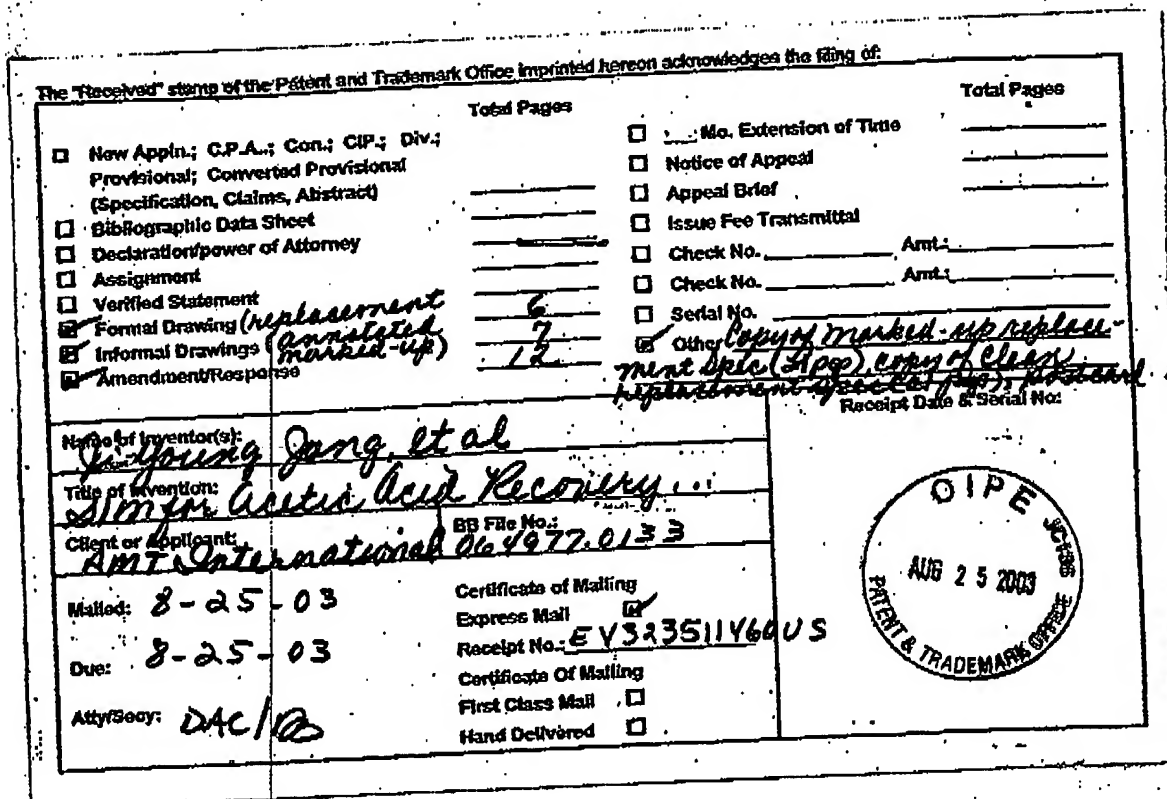 The "Received" stamp of the Patent and Trademark Office imprinted hereon acknowledges the filing of:
Total Pages
New Appln.; C.P.A.; Con.; CIP.; Div.;
Provisional; Converted Provisional
(Specification, Claims, Abstract)
Bibliographic Data Sheet
Declaration/power of Attorney
Assignment
Verified Statement
Formal Drawing (replacement 6
Informal Drawings (annotated marked-up) 7
Amendment/Response 12
Total Pages
Mo. Extension of Time
Notice of Appeal
Appeal Brief
Issue Fee Transmittal
Check No. Amt.:
Check No. Amt.:
Serial No.
Other Copy of marked-up replace-
ment Spec (pgs), copy of clean
replacement pgs), postcard
Name of Inventor(s):
Young Jang, et al
Title of Invention:
S/m for Acetic Acid Recovery...
Client or Applicant:
AMT International
BB File No.:
064977.0133
Mailed: 8-25-03
Due: 8-25-03
Atty/Secy: DAC/
Certificate of Mailing
Express Mail
Receipt No.: EV323511460US
Certificate Of Mailing
First Class Mail
Hand Delivered
Receipt Date & Serial No:
OIPE
AUG 25 2003
PATENT & TRADEMARK OFFICE